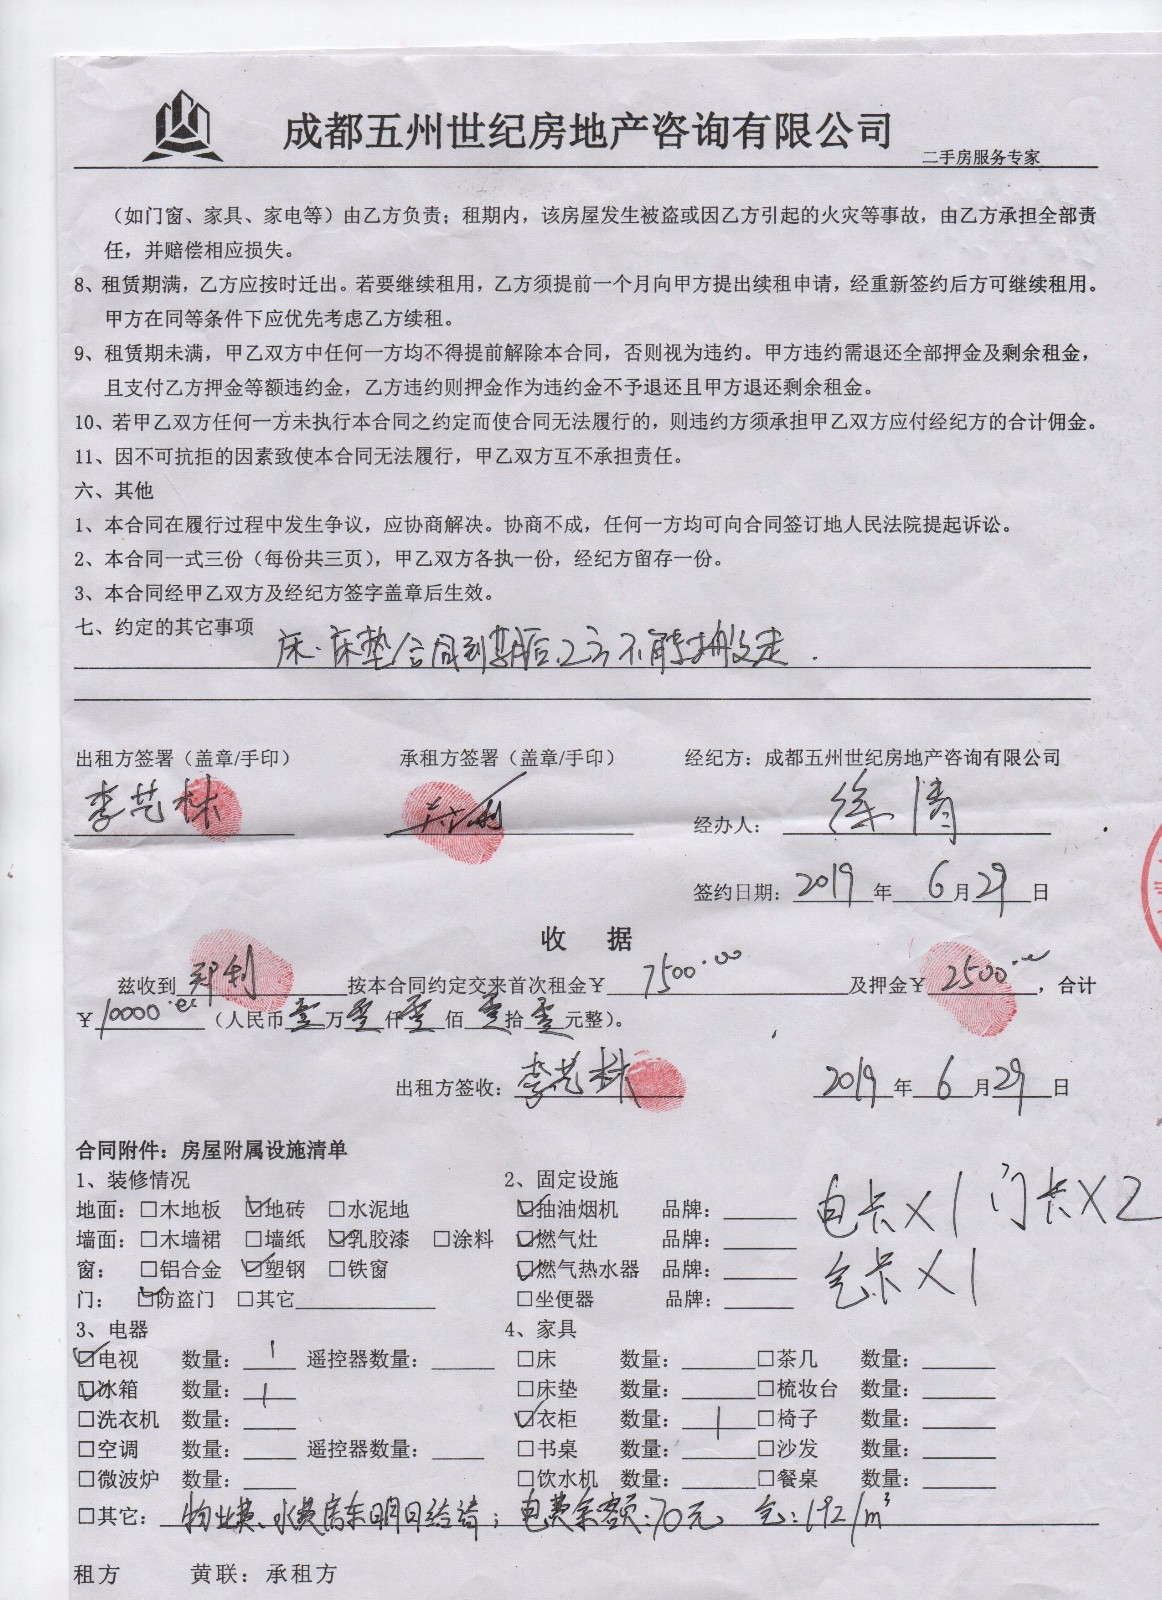 成都五州世纪房地产咨询有限公司
二手房服务专家
（如门窗、家具、家电等）由乙方负责；租期内，该房屋发生被盗或因乙方引起的火灾等事故，由乙方承担全部责
任，并赔偿相应损失。
8、租赁期满，乙方应按时迁出。若要继续租用，乙方须提前一个月向甲方提出续租申请，经重新签约后方可继续租用。
甲方在同等条件下应优先考虑乙方续租。
9、租赁期未满，甲乙双方中任何一方均不得提前解除本合同，否则视为违约。甲方违约需退还全部押金及剩余租金，
且支付乙方押金等额违约金，乙方违约则押金作为违约金不予退还且甲方退还剩余租金。
10、若甲乙双方任何一方未执行本合同之约定而使合同无法履行的，则违约方须承担甲乙双方应付经纪方的合计佣金。
11、因不可抗拒的因素致使本合同无法履行，甲乙双方互不承担责任。
六、其他
1、本合同在履行过程中发生争议，应协商解决。协商不成，任何一方均可向合同签订地人民法院提起诉讼。
2、本合同一式三份（每份共三页），甲乙双方各执一份，经纪方留存一份。
3、本合同经甲乙双方及经纪方签字盖章后生效。
七、约定的其它事项 床、床垫合同到期后，乙方不能搬走.
出租方签署（盖章/手印） 承租方签署（盖章/手印） 经纪方：成都五州世纪房地产咨询有限公司
李艺林
经办人：徐清
签约日期：2019年6月29日
收 据
兹收到 郑利 按本合同约定交来首次租金￥7500.00 及押金￥2500.00，合计
￥10000.00（人民币 壹 万 零 仟 零 佰 零 拾 零 元整）。
出租方签收：李艺林 2019年6月29日
合同附件：房屋附属设施清单
1、装修情况 2、固定设施
地面：□木地板 ☑地砖 □水泥地 ☑抽油烟机 品牌：______ 电卡×1 门卡×2
墙面：□木墙裙 □墙纸 ☑乳胶漆 □涂料 ☑燃气灶 品牌：______
窗： □铝合金 ☑塑钢 □铁窗 ☑燃气热水器 品牌：______ 气卡×1
门： ☑防盗门 □其它______ □坐便器 品牌：______
3、电器 4、家具
☑电视 数量：1 遥控器数量：______ □床 数量：______ □茶几 数量：______
☑冰箱 数量：1 □床垫 数量：______ □梳妆台 数量：______
□洗衣机 数量：______ ☑衣柜 数量：1 □椅子 数量：______
□空调 数量：______ 遥控器数量：______ □书桌 数量：______ □沙发 数量：______
□微波炉 数量：______ □饮水机 数量：______ □餐桌 数量：______
□其它： 物业费、水费房东明日结清；电费余额：70元 气：192/m³
租方 黄联：承租方